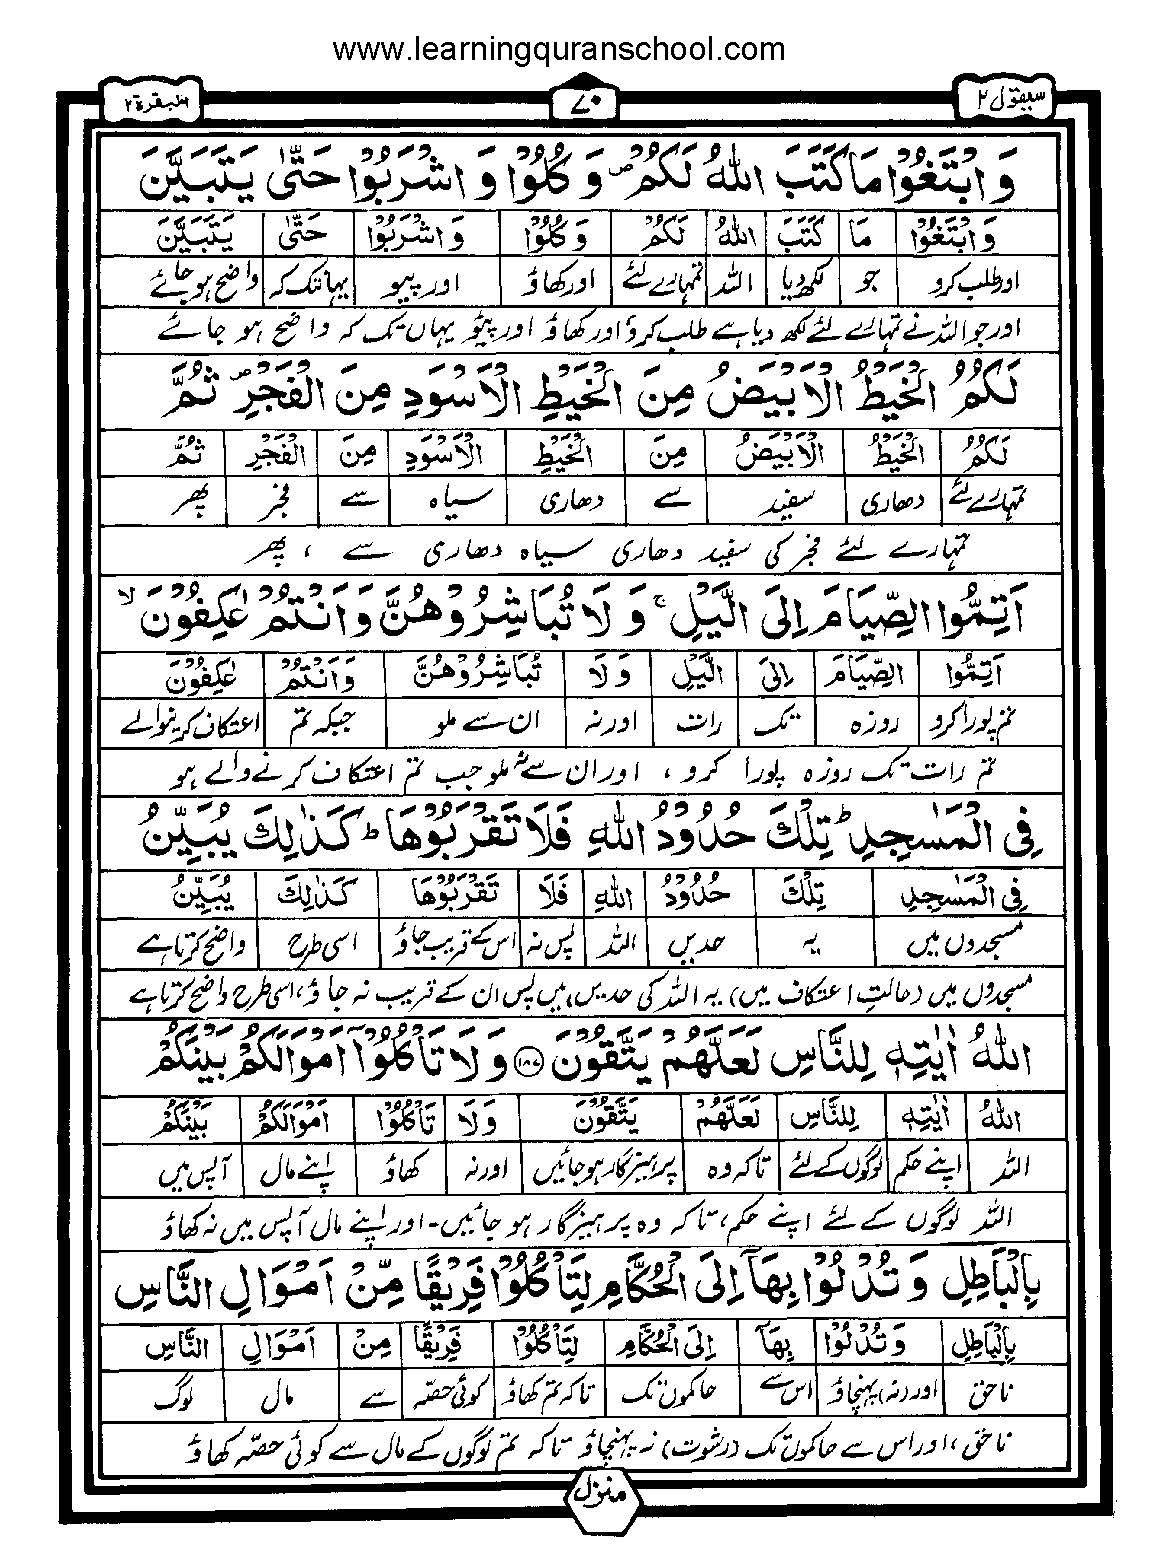 www.learningquranschool.com
سيقول ٢
٧٠
البقرة ٢
وَابْتَغُوْا مَا كَتَبَ اللّٰهُ لَكُمْ ۪ وَكُلُوْا وَاشْرَبُوْا حَتّٰى يَتَبَيَّنَ
وَابْتَغُوْا مَا كَتَبَ اللّٰهُ لَكُمْ وَكُلُوْا وَاشْرَبُوْا حَتّٰى يَتَبَيَّنَ
اور طلب کرو جو لکھ دیا اللہ تمہارے لئے اور کھاؤ اور پیو یہانتک کہ واضح ہو جائے
اور جو اللہ نے تمہارے لئے لکھ دیا ہے طلب کرو اور کھاؤ اور پیئو یہاں تک کہ واضح ہو جائے
لَكُمُ الْخَيْطُ الْاَبْيَضُ مِنَ الْخَيْطِ الْاَسْوَدِ مِنَ الْفَجْرِ ۪ ثُمَّ
لَكُمُ الْخَيْطُ الْاَبْيَضُ مِنَ الْخَيْطِ الْاَسْوَدِ مِنَ الْفَجْرِ ثُمَّ
تمہارے لئے دھاری سفید سے دھاری سیاہ سے فجر پھر
تمہارے لئے فجر کی سفید دھاری سیاہ دھاری سے ، پھر
اَتِمُّوا الصِّيَامَ اِلَى الَّيْلِ ۚ وَلَا تُبَاشِرُوْهُنَّ وَاَنْتُمْ عٰكِفُوْنَ ۙ
اَتِمُّوا الصِّيَامَ اِلَى الَّيْلِ وَلَا تُبَاشِرُوْهُنَّ وَاَنْتُمْ عٰكِفُوْنَ
تم پورا کرو روزہ تک رات اور نہ ان سے ملو جبکہ تم اعتکاف کرنیوالے
تم رات تک روزہ پورا کرو ، اور ان سے نہ ملو جب تم اعتکاف کرنے والے ہو
فِى الْمَسٰجِدِ ؕ تِلْكَ حُدُوْدُ اللّٰهِ فَلَا تَقْرَبُوْهَا ؕ كَذٰلِكَ يُبَيِّنُ
فِى الْمَسٰجِدِ تِلْكَ حُدُوْدُ اللّٰهِ فَلَا تَقْرَبُوْهَا كَذٰلِكَ يُبَيِّنُ
مسجدوں میں یہ حدیں اللہ پس نہ اس کے قریب جاؤ اسی طرح واضح کرتا ہے
مسجدوں میں (حالتِ اعتکاف میں) یہ اللہ کی حدیں ہیں پس ان کے قریب نہ جاؤ، اسی طرح واضح کرتا ہے
اللّٰهُ اٰيٰتِهٖ لِلنَّاسِ لَعَلَّهُمْ يَتَّقُوْنَ ۝١٨٧ وَلَا تَاْكُلُوْۤا اَمْوَالَكُمْ بَيْنَكُمْ
اللّٰهُ اٰيٰتِهٖ لِلنَّاسِ لَعَلَّهُمْ يَتَّقُوْنَ وَلَا تَاْكُلُوْا اَمْوَالَكُمْ بَيْنَكُمْ
اللہ اپنے حکم لوگوں کے لئے تاکہ وہ پرہیزگار ہو جائیں اور نہ کھاؤ اپنے مال آپس میں
اللہ لوگوں کے لئے اپنے حکم، تاکہ وہ پرہیزگار ہو جائیں۔ اور اپنے مال آپس میں نہ کھاؤ
بِالْبَاطِلِ وَتُدْلُوْا بِهَاۤ اِلَى الْحُكَّامِ لِتَاْكُلُوْا فَرِيْقًا مِّنْ اَمْوَالِ النَّاسِ
بِالْبَاطِلِ وَتُدْلُوْا بِهَاۤ اِلَى الْحُكَّامِ لِتَاْكُلُوْا فَرِيْقًا مِنْ اَمْوَالِ النَّاسِ
ناحق اور (نہ) پہنچاؤ اس سے حاکموں تک تاکہ تم کھاؤ کوئی حصّہ سے مال لوگ
ناحق ، اور اس سے حاکموں تک (رشوت) نہ پہنچاؤ تاکہ تم لوگوں کے مال سے کوئی حصّہ کھاؤ
منزل